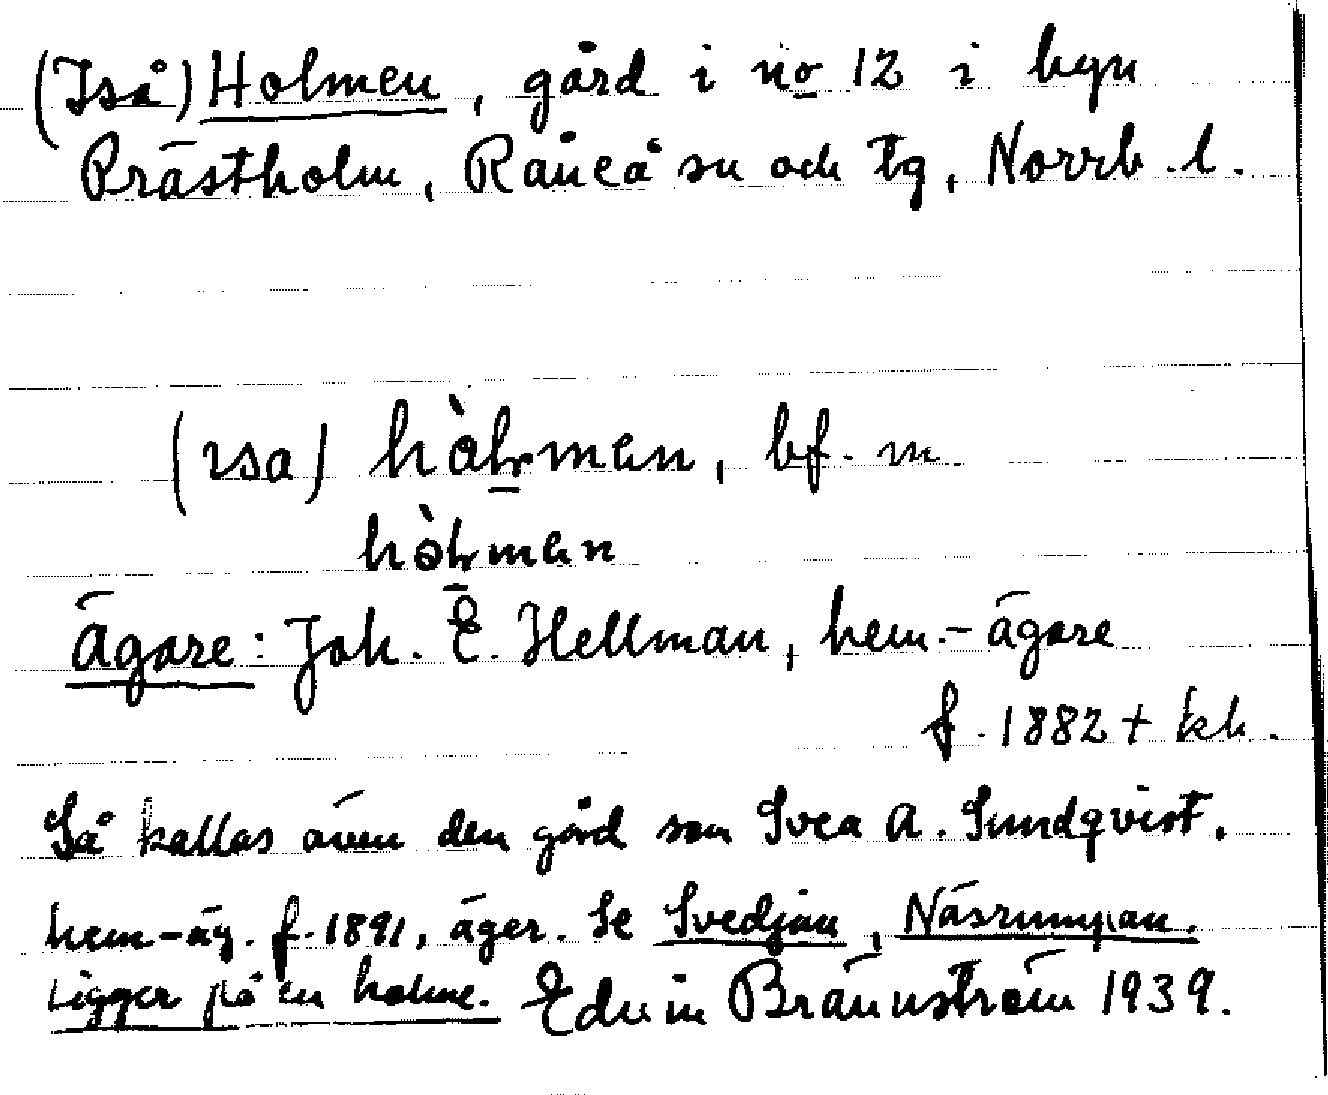 (Iså) Holmen, gård i no 12 i byn
Prästholm, Råneå sn och tg, Norrb. l.
(ɩsa) hòḻmen, bf. m
hòḻmen
Ägare: Joh. E. Hellman, hem.-ägare
f. 1882 + kh.
Så kallas även den gård som Svea A. Sundqvist,
hem-äg. f. 1891, äger. Se Svedjan, Näsrumpan.
Ligger på en holme. Edvin Brännström 1939.